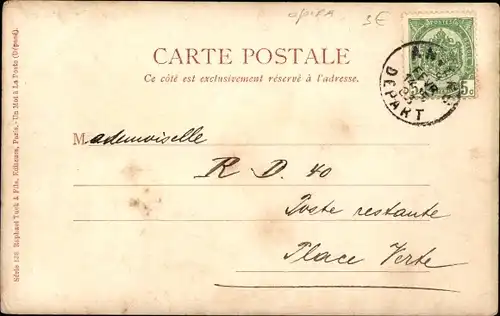 3€
CARTE POSTALE
Ce côté est exclusivement réservé à l'adresse.
Mademoiselle
R. D. 40
Poste restante
Place Verte
DÉPART
5 5c
Série 526 Raphael Tuck & Fils, Editeurs, Paris.-Un Mot à La Poste (Déposé).